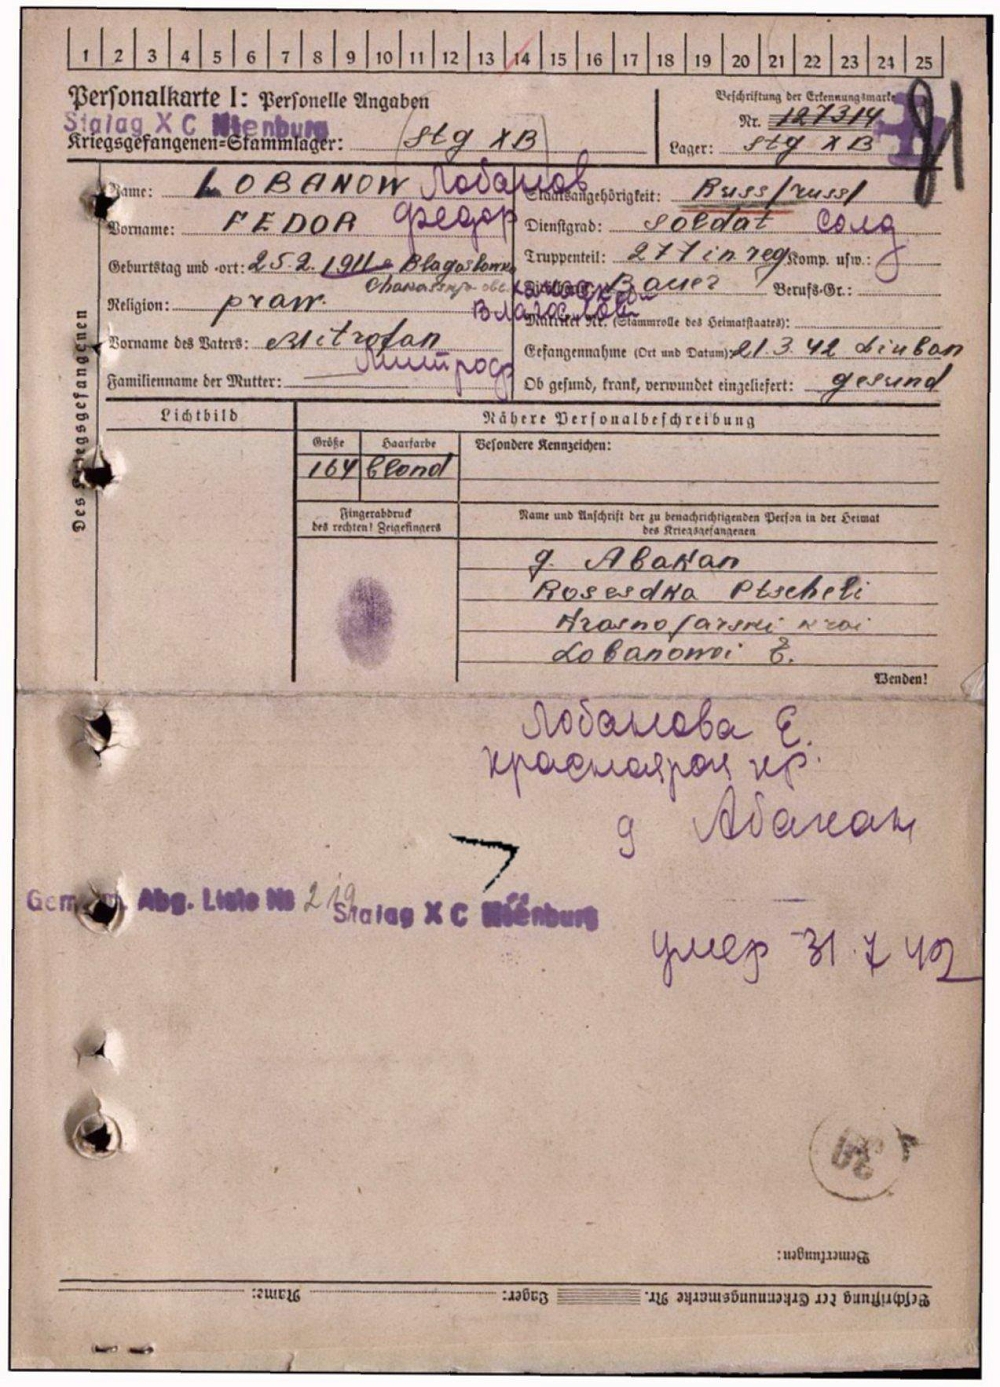 1 2 3 4 5 6 7 8 9 10 11 12 13 14 15 16 17 18 19 20 21 22 23 24 25
Personalkarte I: Personelle Angaben
Stalag X C Nienburg
Kriegsgefangenen=Stammlager: Stg XB
Beschriftung der Erkennungsmarke
Nr. 127314
Lager: Stg XB
81
Des Kriegsgefangenen
Name: LOBANOW Лобанов
Vorname: FEDOR Федор
Geburtstag und -ort: 25.2.1911
Religion: praw.
Vorname des Vaters: Mitrofan
Митроф
Familienname der Mutter:
Staatsangehörigkeit: Russ/russ/
Dienstgrad: Soldat Солд
Truppenteil: 277 in reg Komp. usw.:
Bauer Berufs-Gr.:
Matrikel Nr. (Stammrolle des Heimatstaates):
Gefangennahme (Ort und Datum): 21.3.42 Liuban
Ob gesund, krank, verwundet eingeliefert: gesund
Lichtbild
Nähere Personalbeschreibung
Größe Haarfarbe Besondere Kennzeichen:
164 blond
Fingerabdruck
des rechten! Zeigefingers
Name und Anschrift der zu benachrichtigenden Person in der Heimat
des Kriegsgefangenen
g. Abakan
Roseska Ptscheli
Krasnojarski krai
Lobanowoi E.
Wenden!
Лобанова Е.
Красноярск кр.
д Абакан
Abg. Liste № 219
Stalag X C Nienburg
умер 31.7 42
30
Bemerkungen:
Beschriftung der Erkennungsmarke Nr. Lager: Name: